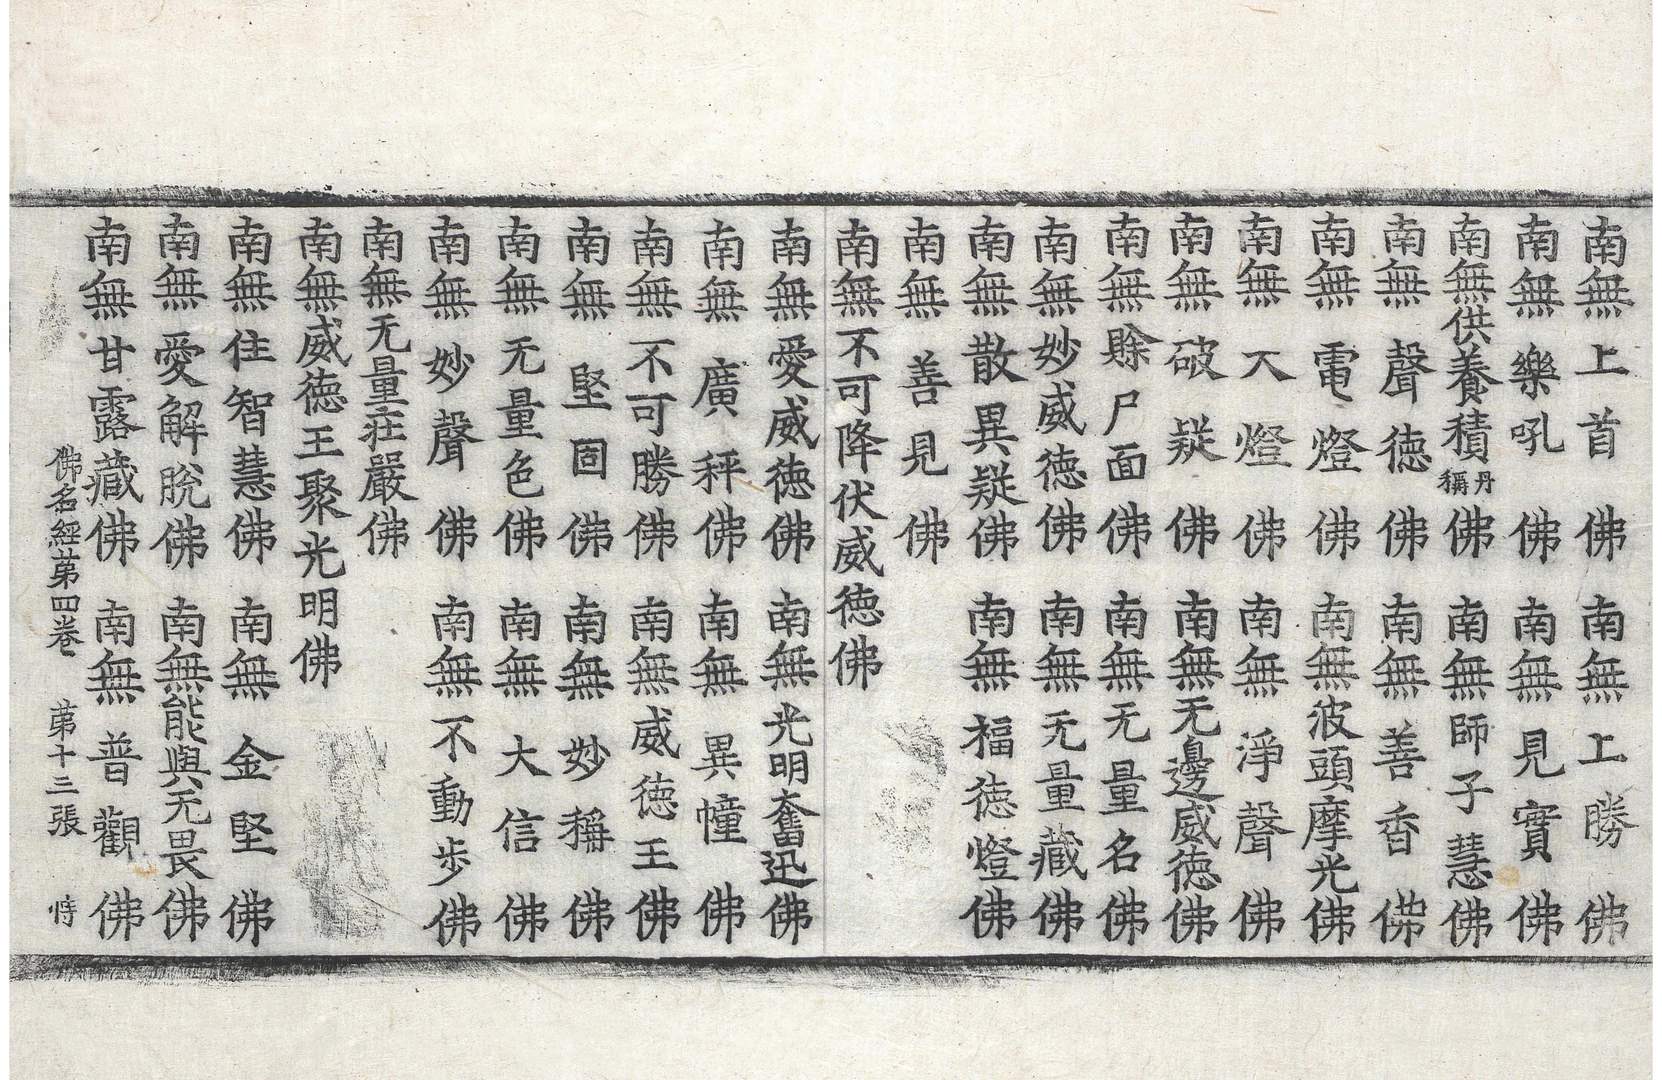 南無上首佛 南無上勝佛
南無樂吼佛 南無見實佛
南無供養積丹稱佛 南無師子慧佛
南無聲德佛 南無善香佛
南無電燈佛 南無波頭摩光佛
南無大燈佛 南無淨聲佛
南無破疑佛 南無无邊威德佛
南無賒尸面佛 南無无量名佛
南無妙威德佛 南無无量藏佛
南無散異疑佛 南無福德燈佛
南無善見佛
南無不可降伏威德佛
南無愛威德佛 南無光明奮迅佛
南無廣秤佛 南無異幢佛
南無不可勝佛 南無威德王佛
南無堅固佛 南無妙稱佛
南無无量色佛 南無大信佛
南無妙聲佛 南無不動步佛
南無无量莊嚴佛
南無威德王聚光明佛
南無住智慧佛 南無金堅佛
南無愛解脫佛 南無能與无畏佛
南無甘露藏佛 南無普觀佛
佛名經苐四卷 苐十三張 恃